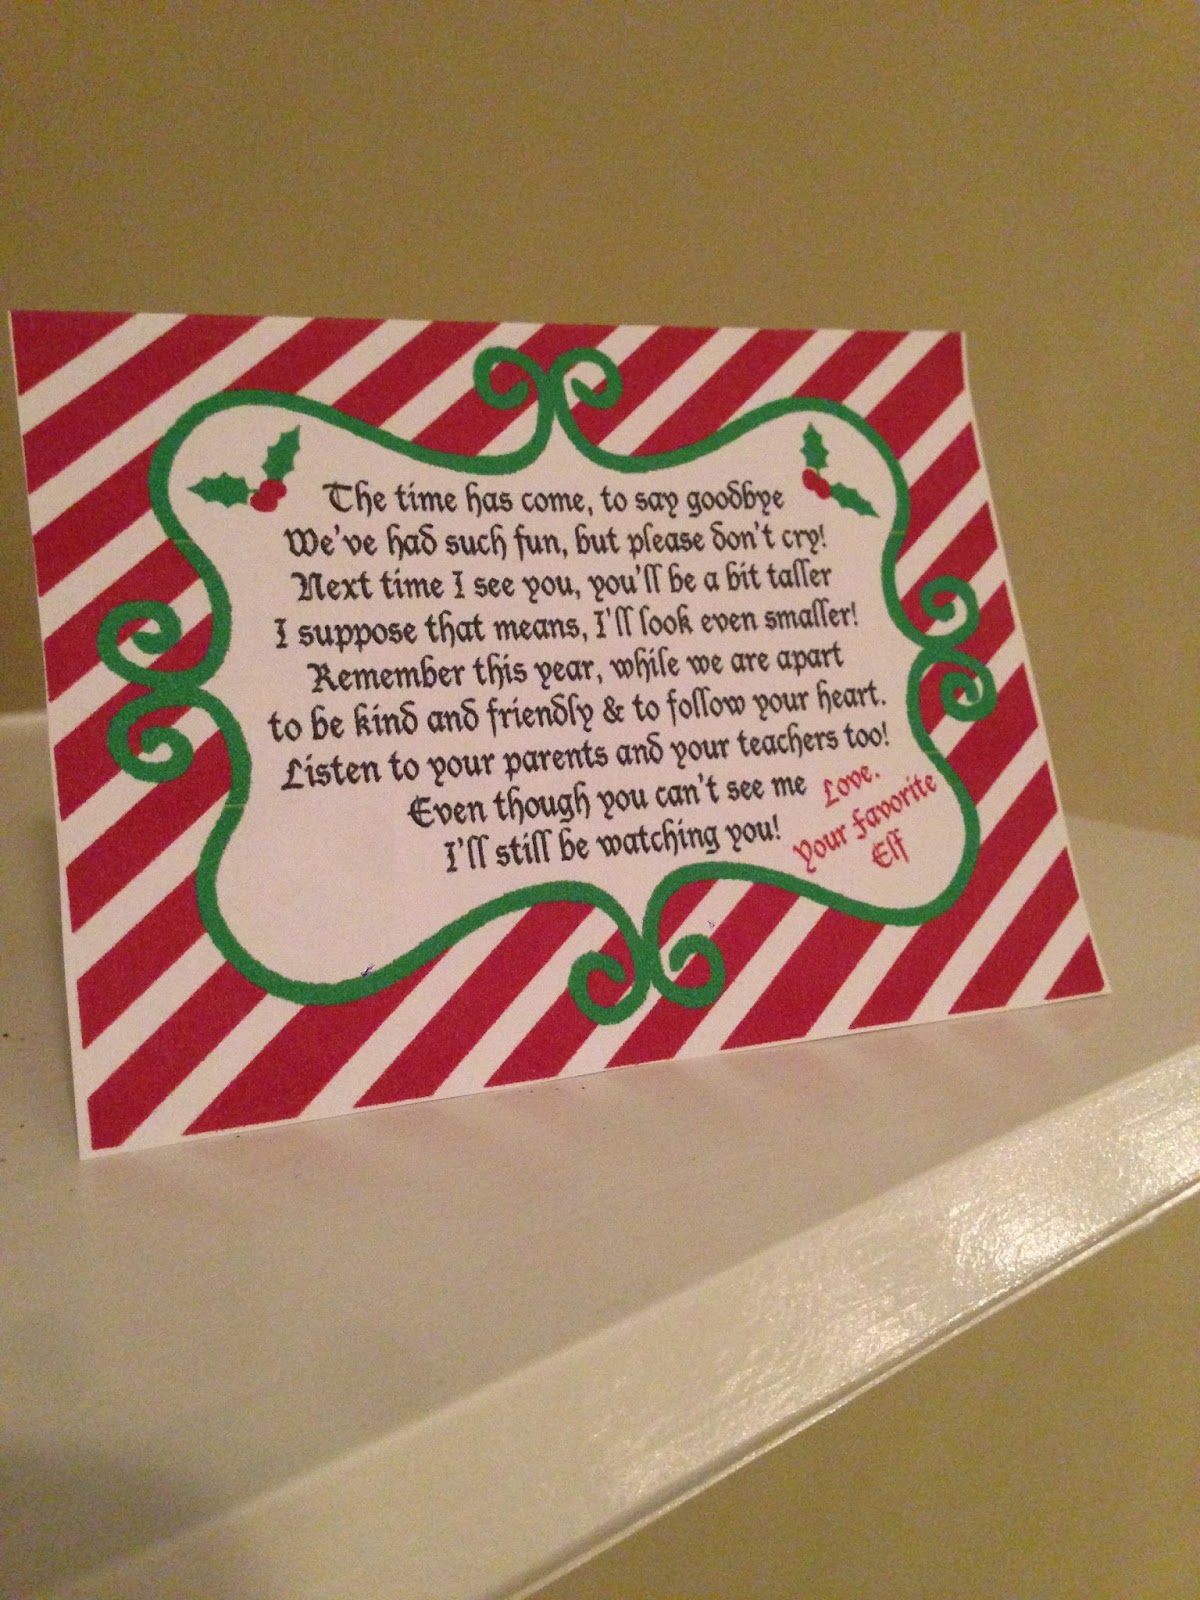 The time has come, to say goodbye
We've had such fun, but please don't cry!
Next time I see you, you'll be a bit taller
I suppose that means, I'll look even smaller!
Remember this year, while we are apart
to be kind and friendly & to follow your heart.
Listen to your parents and your teachers too!
Even though you can't see me
I'll still be watching you!
Love,
Your Favorite
Elf